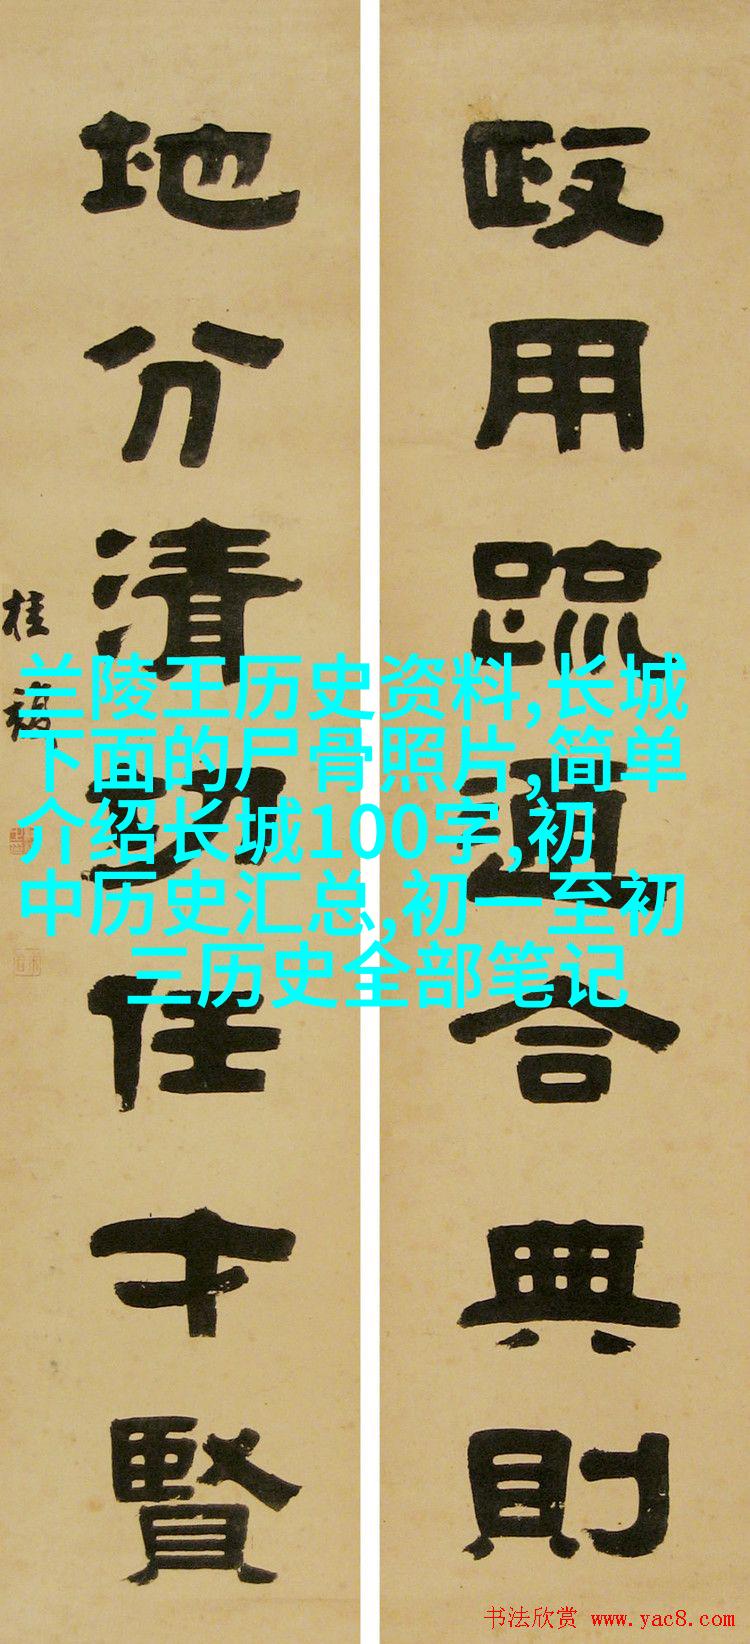 政用疏通合典則
地分清切任才賢
桂馥
兰陵王历史资料,长城
下面的尸骨照片,简单
介绍长城100字,初
中历史汇总,初一至初
三历史全部笔记
书法欣赏 www.yac8.com